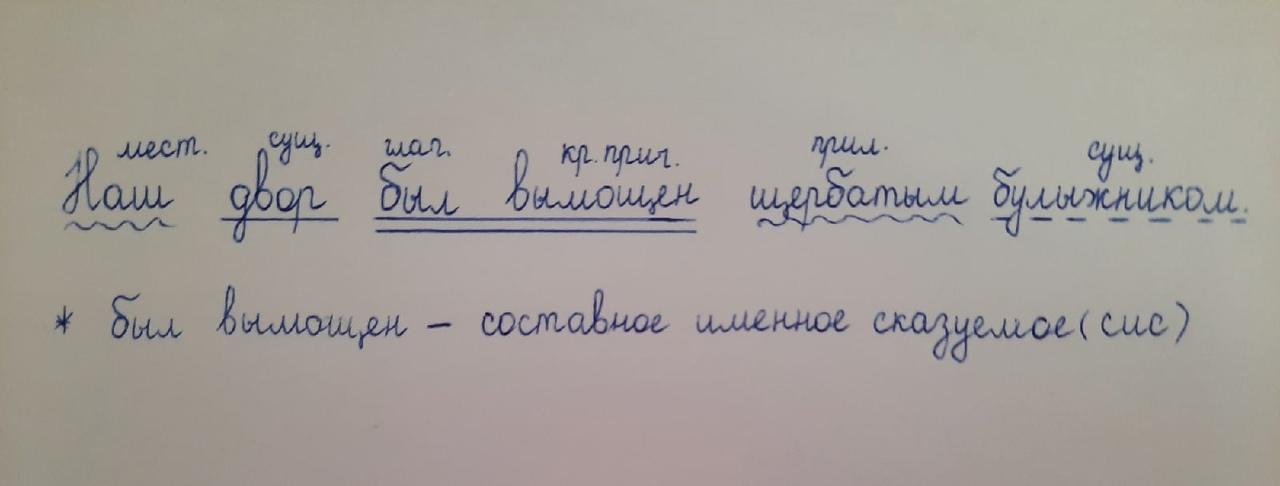 мест. сущ. глаг. кр. прич. прил. сущ.
Наш двор был вымощен щербатым булыжником.
* был вымощен – составное именное сказуемое (сис)